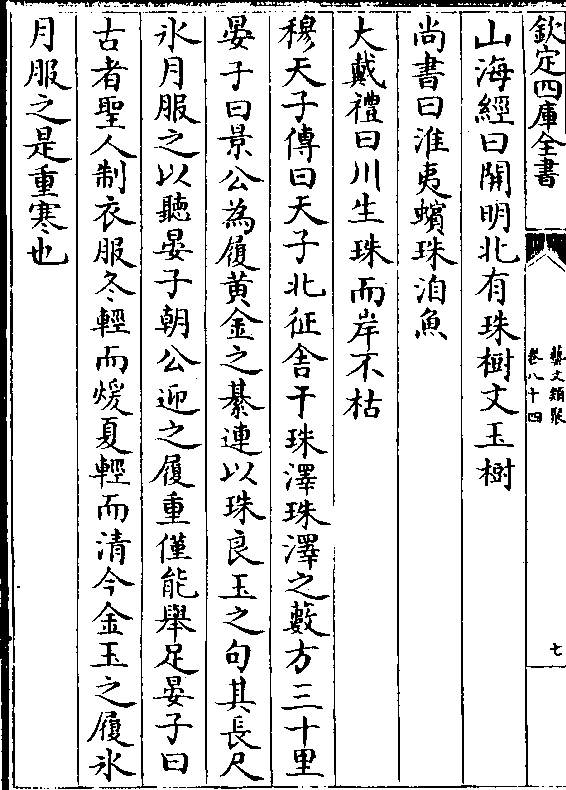 欽定四庫全書
藝文類聚
卷八十四
七
山海經曰開明北有珠樹文玉樹
尚書曰淮夷蠙珠洎魚
大戴禮曰川生珠而岸不枯
穆天子傳曰天子北征舍于珠澤珠澤之藪方三十里
晏子曰景公為履黃金之綦連以珠良玉之句其長尺
氷月服之以聽晏子朝公迎之履重僅能舉足晏子曰
古者聖人制衣服冬輕而煖夏輕而清今金玉之履氷
月服之是重寒也